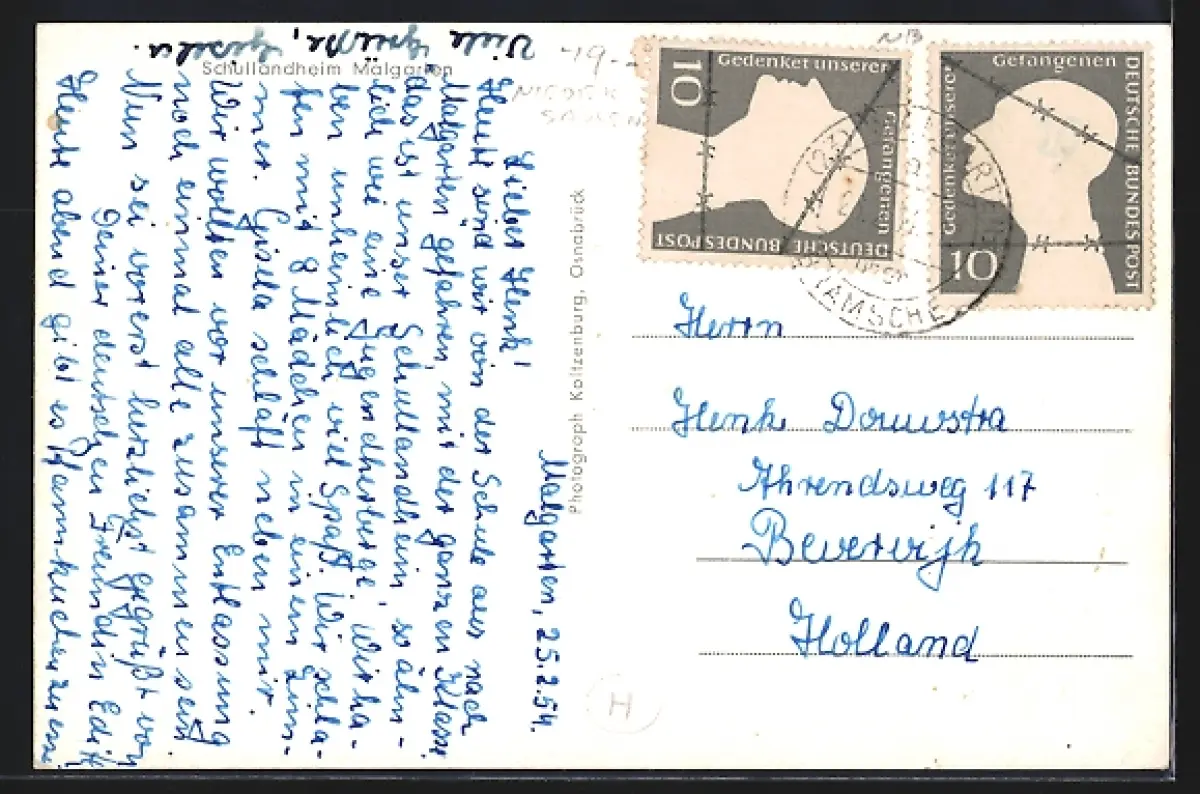 Schullandheim Malgarten
Malgarten, 25.2.54.
Lieber Henk!
Heute sind wir von der Schule aus nach
Malgarten gefahren, mit der ganzen Klasse
das ist unser Schullandheim, so ähn-
lich wie eine Jugendherberge. Wir ha-
ben unheimlich viel Spaß. Wir schla-
fen mit 8 Mädchen in einem Zim-
mer. Gisela schläft neben mir.
Wir wollten vor unserer Entlassung
noch einmal alle zusammen sein
Nun sei vorerst herzlichst gegrüßt von
Deiner deutschen Freundin Edith
Heute abend gibt es Pfannkuchen zu essen
Viele Grüsse, Gisela.
Photograph Koltzenburg, Osnabrück
10
Gedenket unserer
Gefangenen
DEUTSCHE BUNDESPOST
Gedenket unserer
Gefangenen
DEUTSCHE BUNDESPOST
10
(23)
Herrn
Henk Douwstra
Ahrendsweg 117
Beverwijk
Holland
H